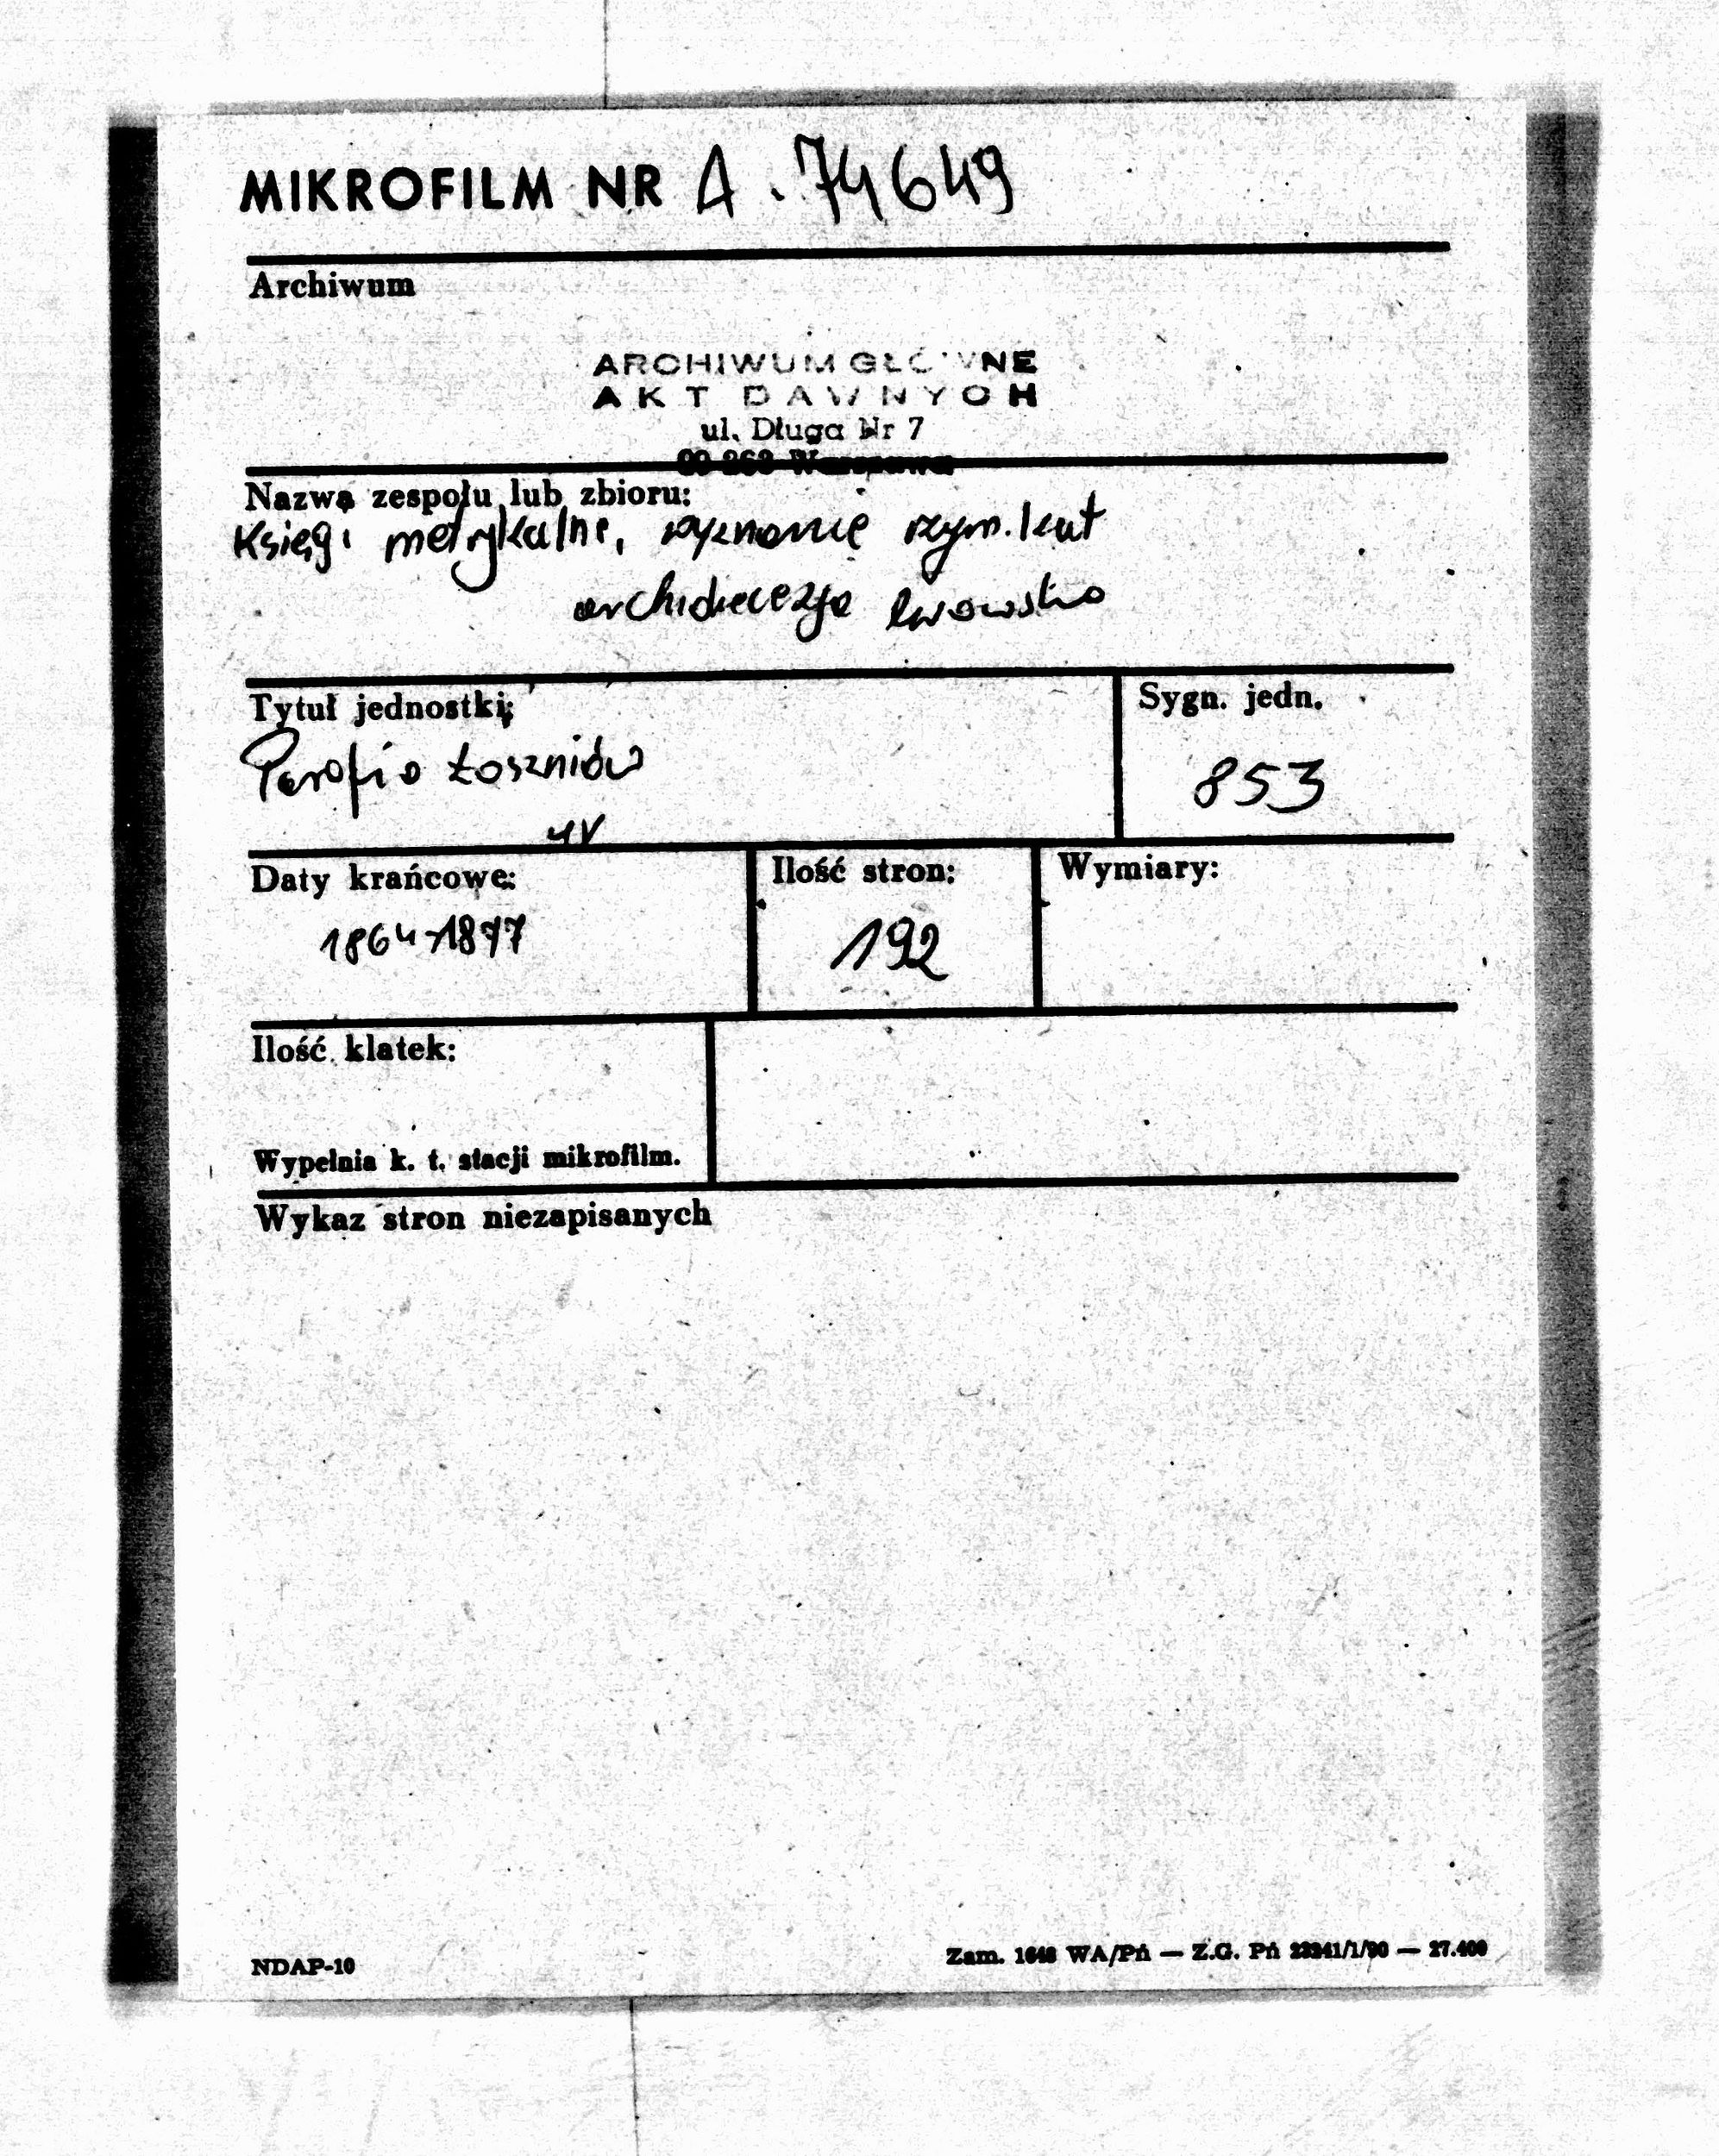 MIKROFILM NR A. 74649
Archiwum
ARCHIWUM GŁÓWNE
AKT DAWNYCH
ul. Długa Nr 7
00-263 Warszawa
Nazwa zespołu lub zbioru:
Księgi metrykalne, wyznanie rzym. kat
archidiecezja lwowska
Tytuł jednostki:
Sygn. jedn.
Parafia Łoszniów
853
UV
Daty krańcowe:
Ilość stron:
Wymiary:
1864-1877
192
Ilość klatek:
Wypełnia k. t. stacji mikrofilm.
Wykaz stron niezapisanych
NDAP-10
Zam. 1648 WA/Pń — Z.G. Pń /1/90 — 27.400